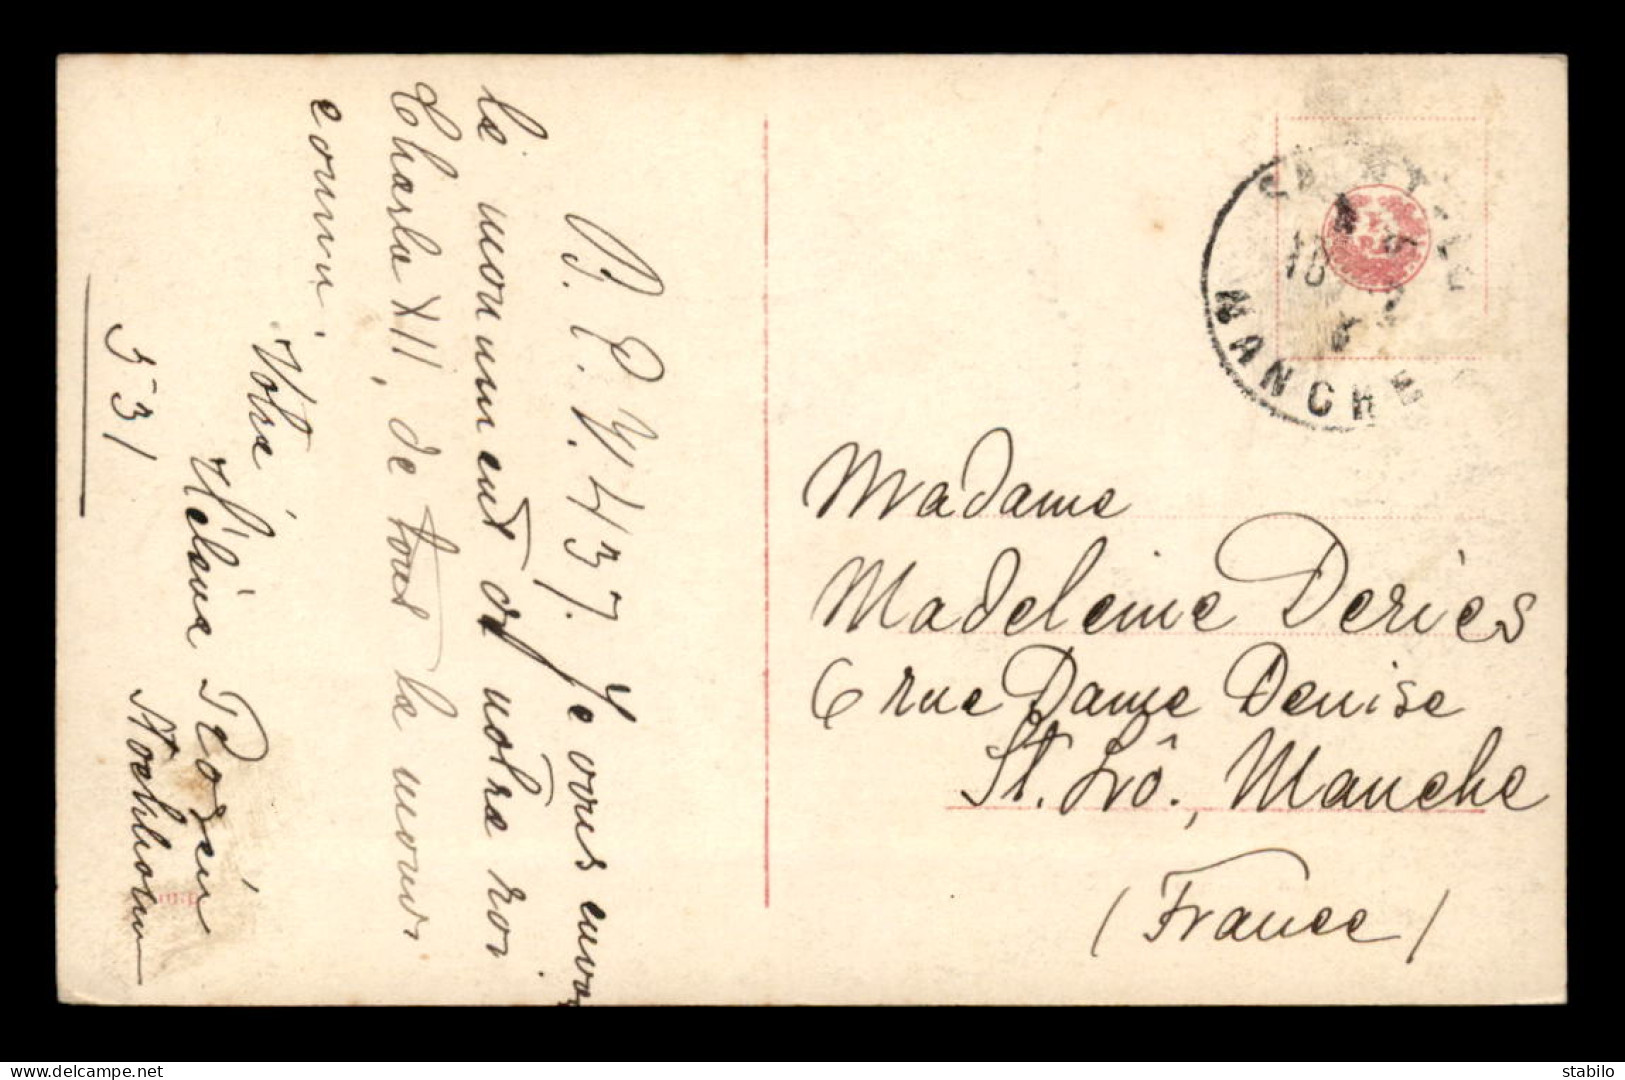 B. P. Y. 437. Je vous envo
le monument de notre roi
Charle XII, de tout le mond
connu.
Votre
Héléna Rosén
Stockholm
531
MANCHE
10
Madame
Madeleine Deriès
6 rue Dame Denise
St. Lô., Manche
(France)
delcampe.net
stabilo